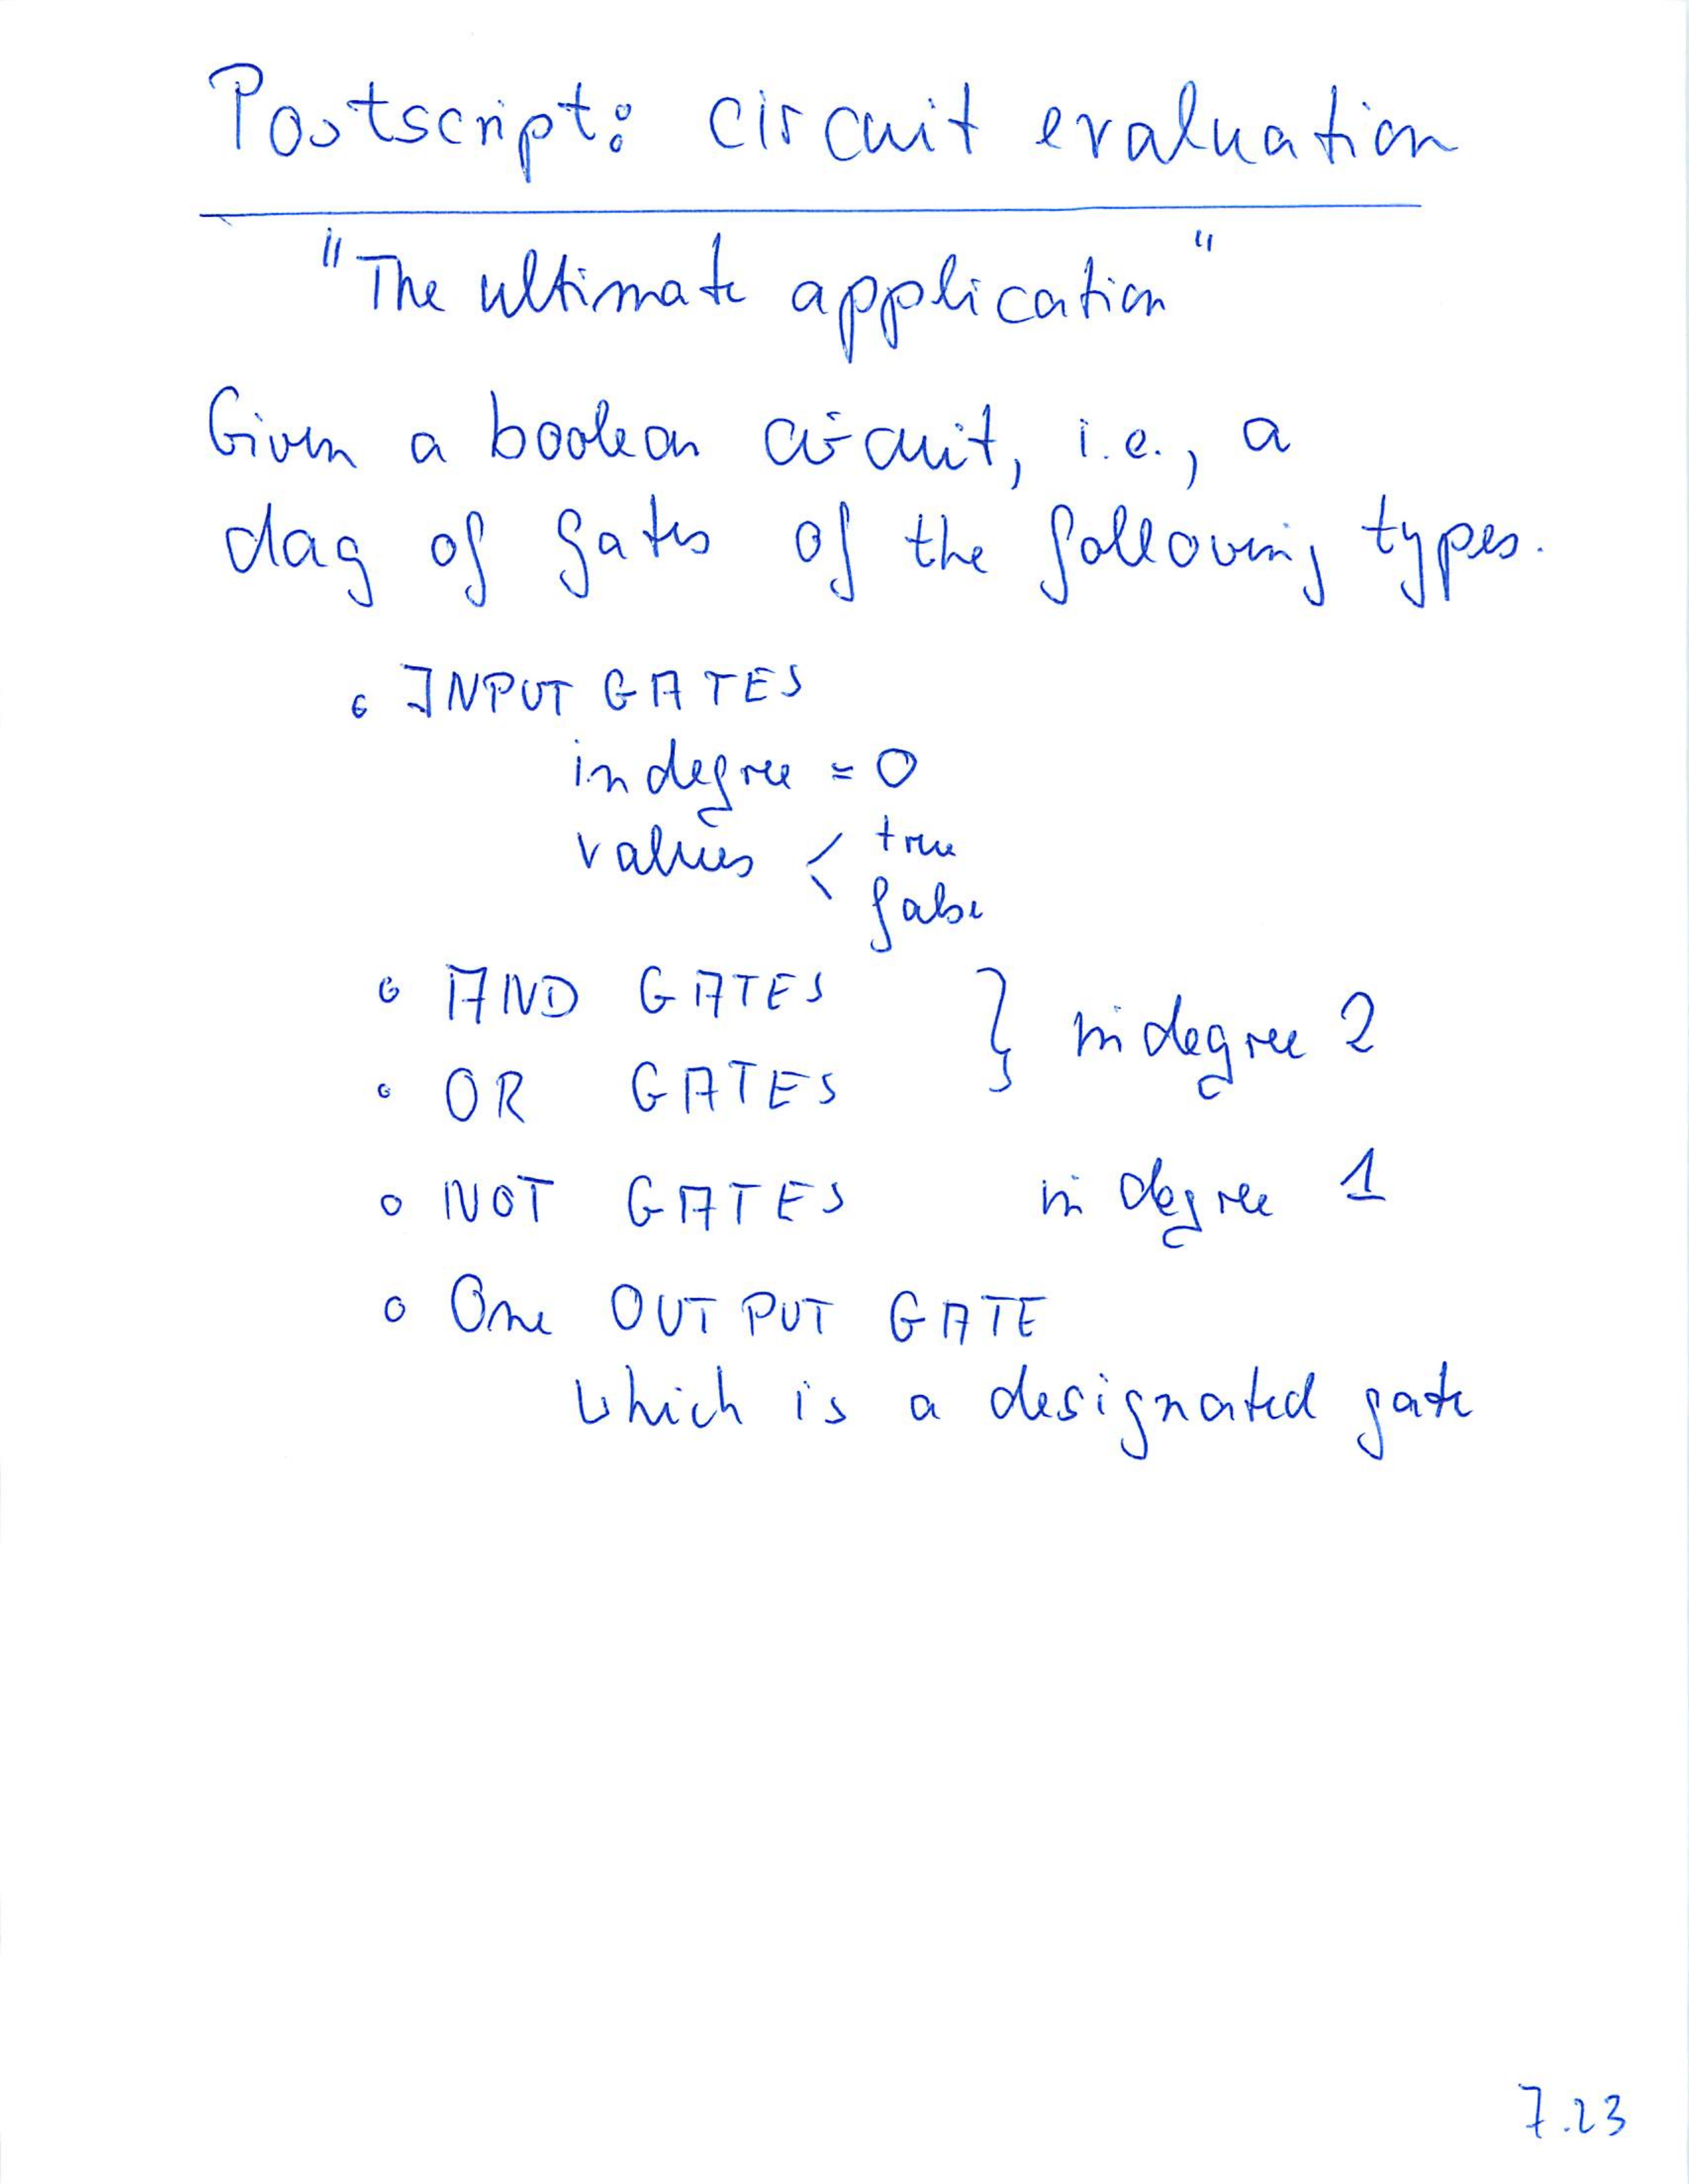 Postscript: circuit evaluation
"The ultimate application"
Given a boolean circuit, i.e., a
dag of gates of the following types.
• INPUT GATES
indegree = 0
values < true
false
• AND GATES } indegree 2
• OR GATES
• NOT GATES indegree 1
• One OUTPUT GATE
which is a designated gate
7.23